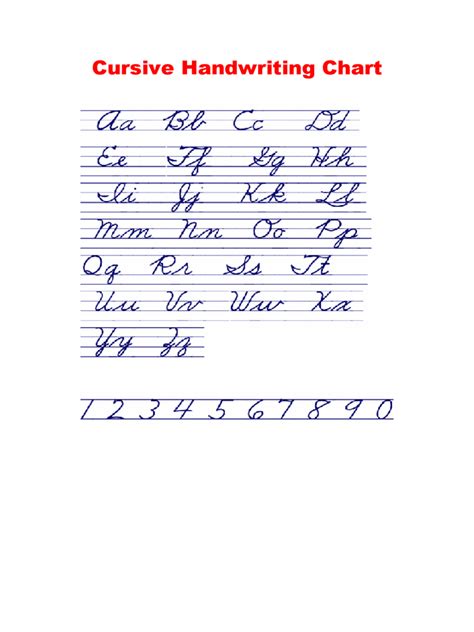 Cursive Handwriting Chart
Aa Bb Cc Dd
Ee Ff Gg Hh
Ii Jj Kk Ll
Mm Nn Oo Pp
Qq Rr Ss Tt
Uu Vv Ww Xx
Yy Zz
1 2 3 4 5 6 7 8 9 0